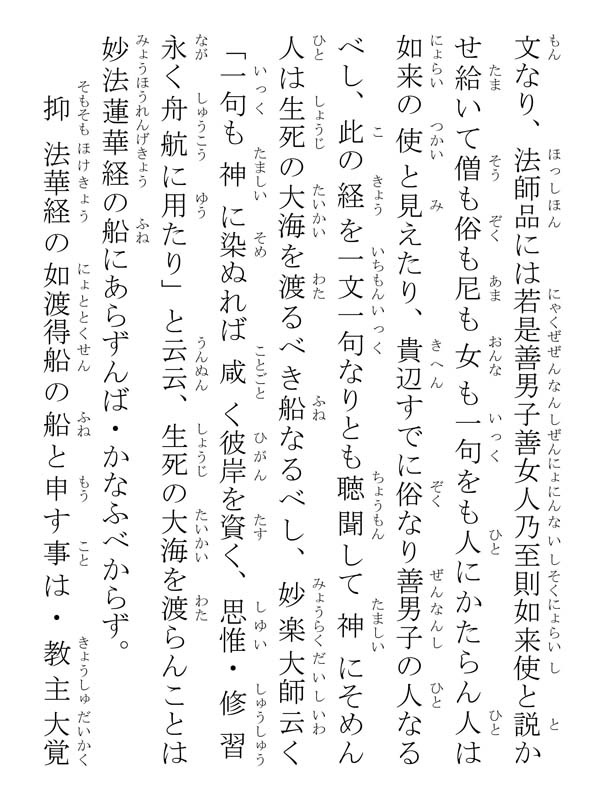 文なり、法師品には若是善男子善女人乃至則如来使と説か
せ給いて僧も俗も尼も女も一句をも人にかたらん人は
如来の使と見えたり、貴辺すでに俗なり善男子の人なる
べし、此の経を一文一句なりとも聴聞して神にそめん
人は生死の大海を渡るべき船なるべし、妙楽大師云く
「一句も神に染ぬれば咸く彼岸を資く、思惟・修習
永く舟航に用たり」と云云、生死の大海を渡らんことは
妙法蓮華経の船にあらずんば・かなふべからず。
抑法華経の如渡得船の船と申す事は・教主大覚